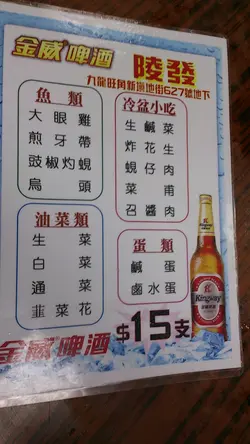 金威啤酒
陵發
九龍旺角新填地街627號地下
魚類
大眼雞
煎牙帶
豉椒灼蜆
烏頭
冷盆小吃
生鹹菜
炸花生
蜆仔肉
菜甫
召醬肉
油菜類
生菜
白菜
通菜
韭菜花
蛋類
鹹蛋
鹵水蛋
Kingway
$15支
金威啤酒